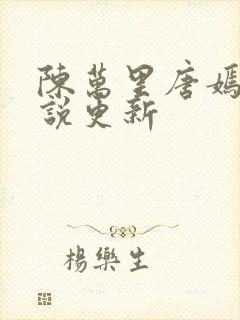 陳萬里唐嫣
說更新
楊樂生